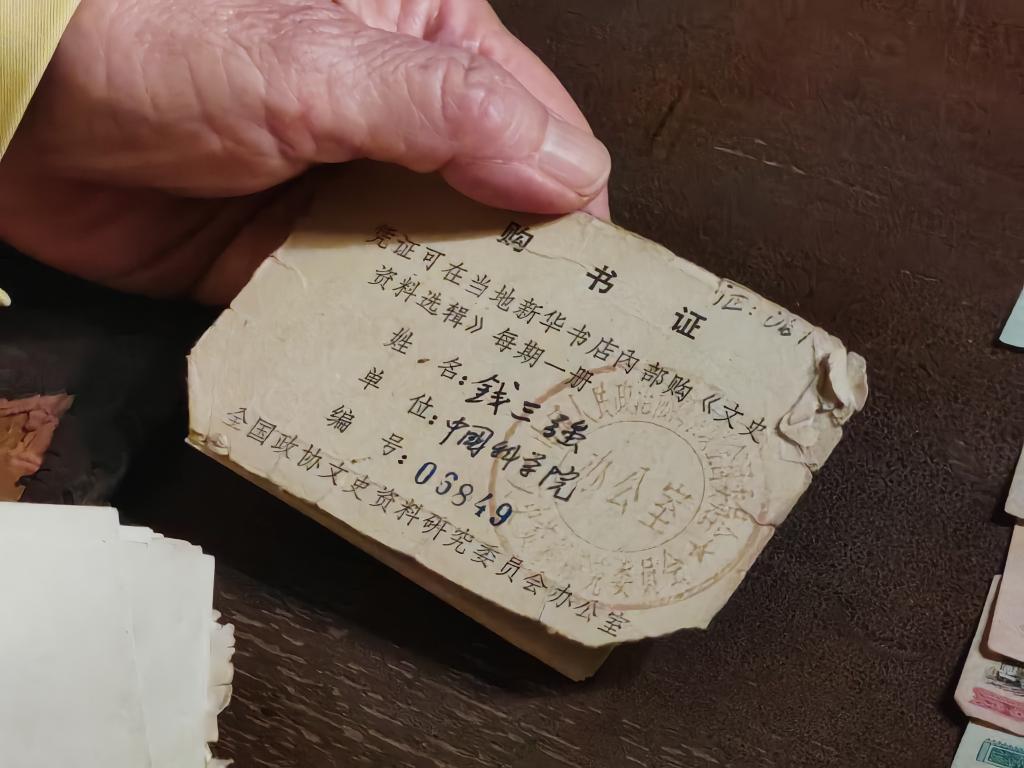 购书证
证:061
凭证可在当地新华书店内部购《文史
资料选辑》每期一册
姓名:钱三强
单位:中国科学院
编号:06849
全国政协文史资料研究委员会办公室
办公室